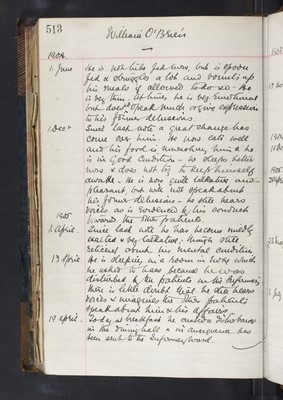 513
William O'Brien
1904
1. June He is not tube fed now, but is spoon
fed & struggles a lot and vomits up
his meals if allowed to do so - He
is very thin. At times he is very emotional
but doesn't speak much or give expression
to his former delusions.
1 Decr Since last note a great change has
come over him. He now eats well
and his food is nourishing him & he
is in Good Condition - he sleeps better
now & does not try to keep himself
awake - He is now quite talkative and
pleasant, but will not speak about
his former delusions - he still hears
voices as is evidenced by his conduct
toward the other patients.
1905
1. April. Since last note he has become mildly
exalted & very talkative, though still
reticent about his mental condition
13 April He is sleeping in a room in to which
he asked to have because he was
disturbed by the patients in the Infirmary
there is little doubt that he still hears
voices & imagines the other patients
speak about him & his affairs.
19 april. Today at breakfast he caused a disturbance
in the dining hall & in consequence has
been sent to the Infirmary Ward.